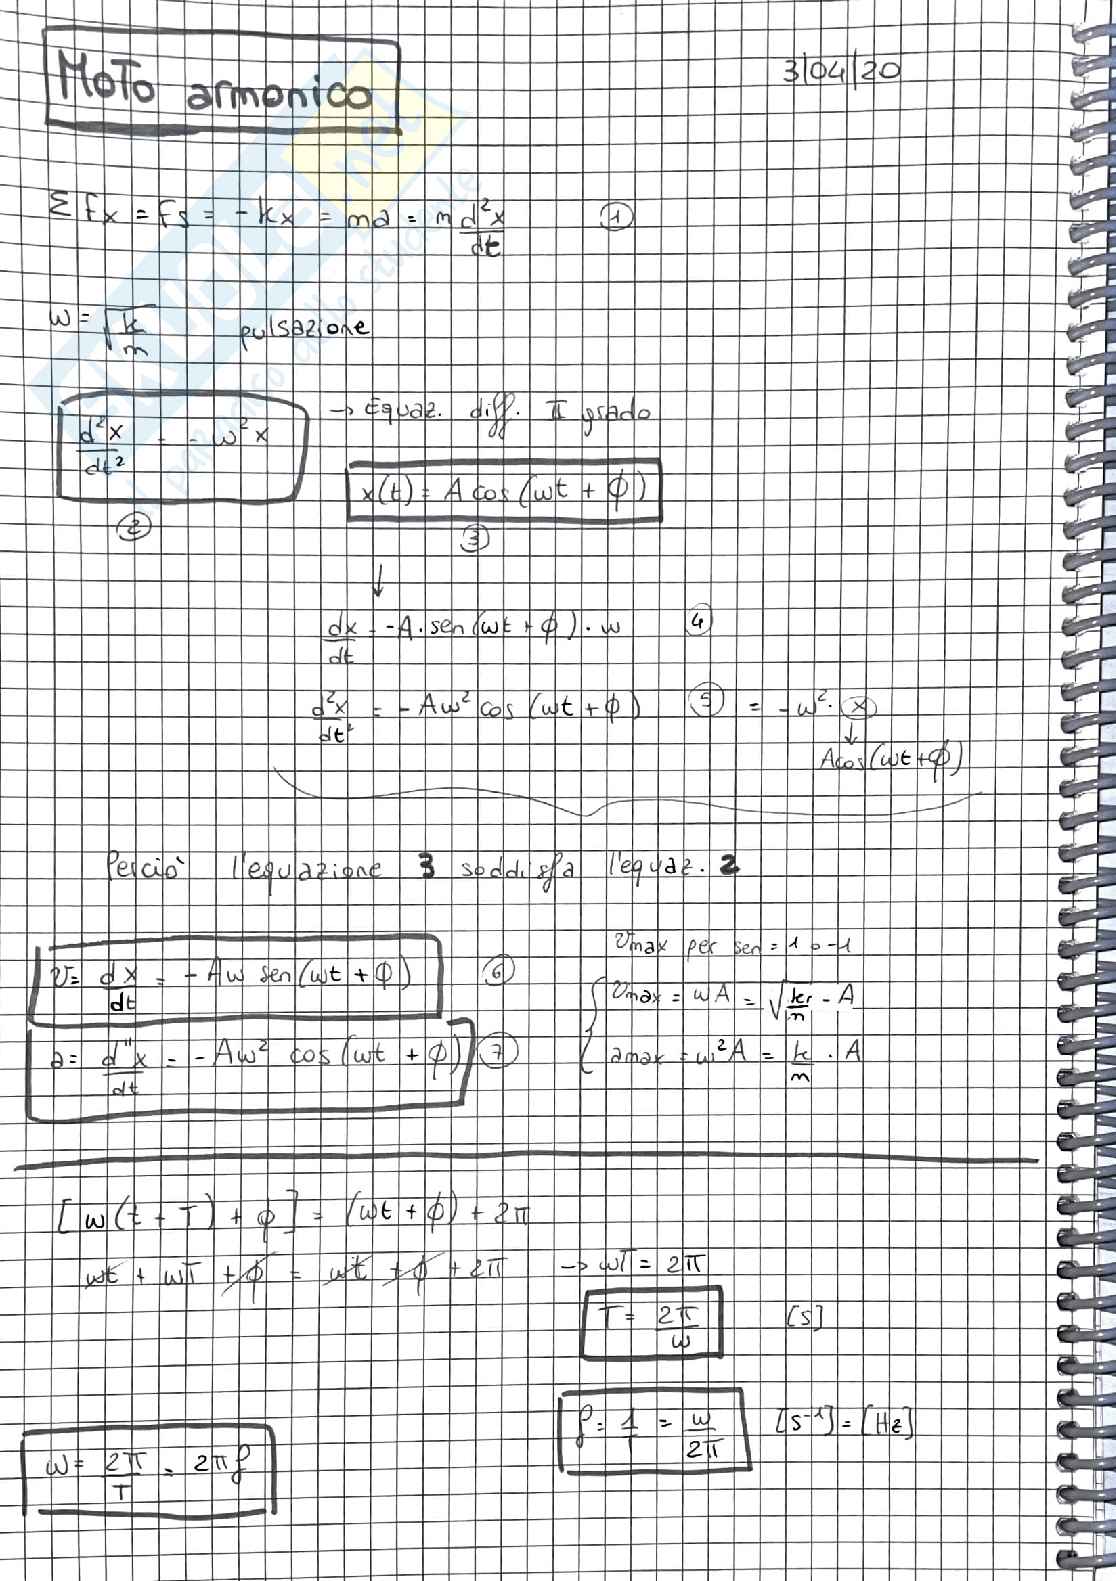 Moto armonico
3/04/20
ΣFx = Fs = -kx = ma = m d²x/dt ①
ω = √k/m pulsazione
d²x/dt² = -ω²x → Equaz. diff. II grado
②
x(t) = A cos(ωt + ϕ)
③
↓
dx/dt = -A·sen(ωt + ϕ)·ω ④
d²x/dt² = -Aω² cos(ωt + ϕ) ⑤ = -ω²·x
↓
Acos(ωt + ϕ)
Perciò l'equazione 3 soddisfa l'equaz. 2
v = dx/dt = -Aω sen(ωt + ϕ) ⑥
a = d"x/dt = -Aω² cos(ωt + ϕ) ⑦
vmax per sen = 1 o -1
vmax = ωA = √k/m - A
amax = ω²A = k/m · A
[ω(t + T) + ϕ] = (ωt + ϕ) + 2π
ωt + ωT + ϕ = ωt + ϕ + 2π → ωT = 2π
T = 2π/ω [s]
f = 1/T = ω/2π [s⁻¹] = [Hz]
ω = 2π/T = 2πf